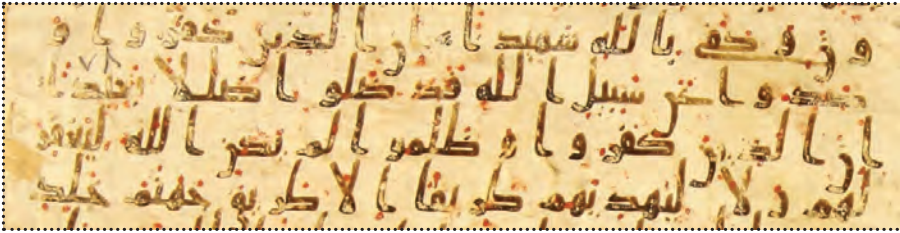 ون وكفى بالله شهيدا ان الذين كفروا و
صدوا عن سبيل الله قد ضلوا ضللا بعيدا
ان الذين كفروا وظلموا لم يكن الله ليغفر
لهم ولا ليهديهم طريقا الا طريق جهنم خلد